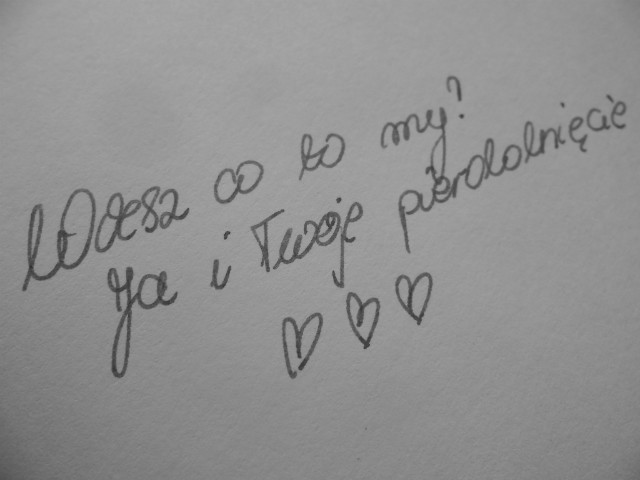 Wiesz co to my?
Ja i Twoje pierdolnięcie
♡ ♡ ♡